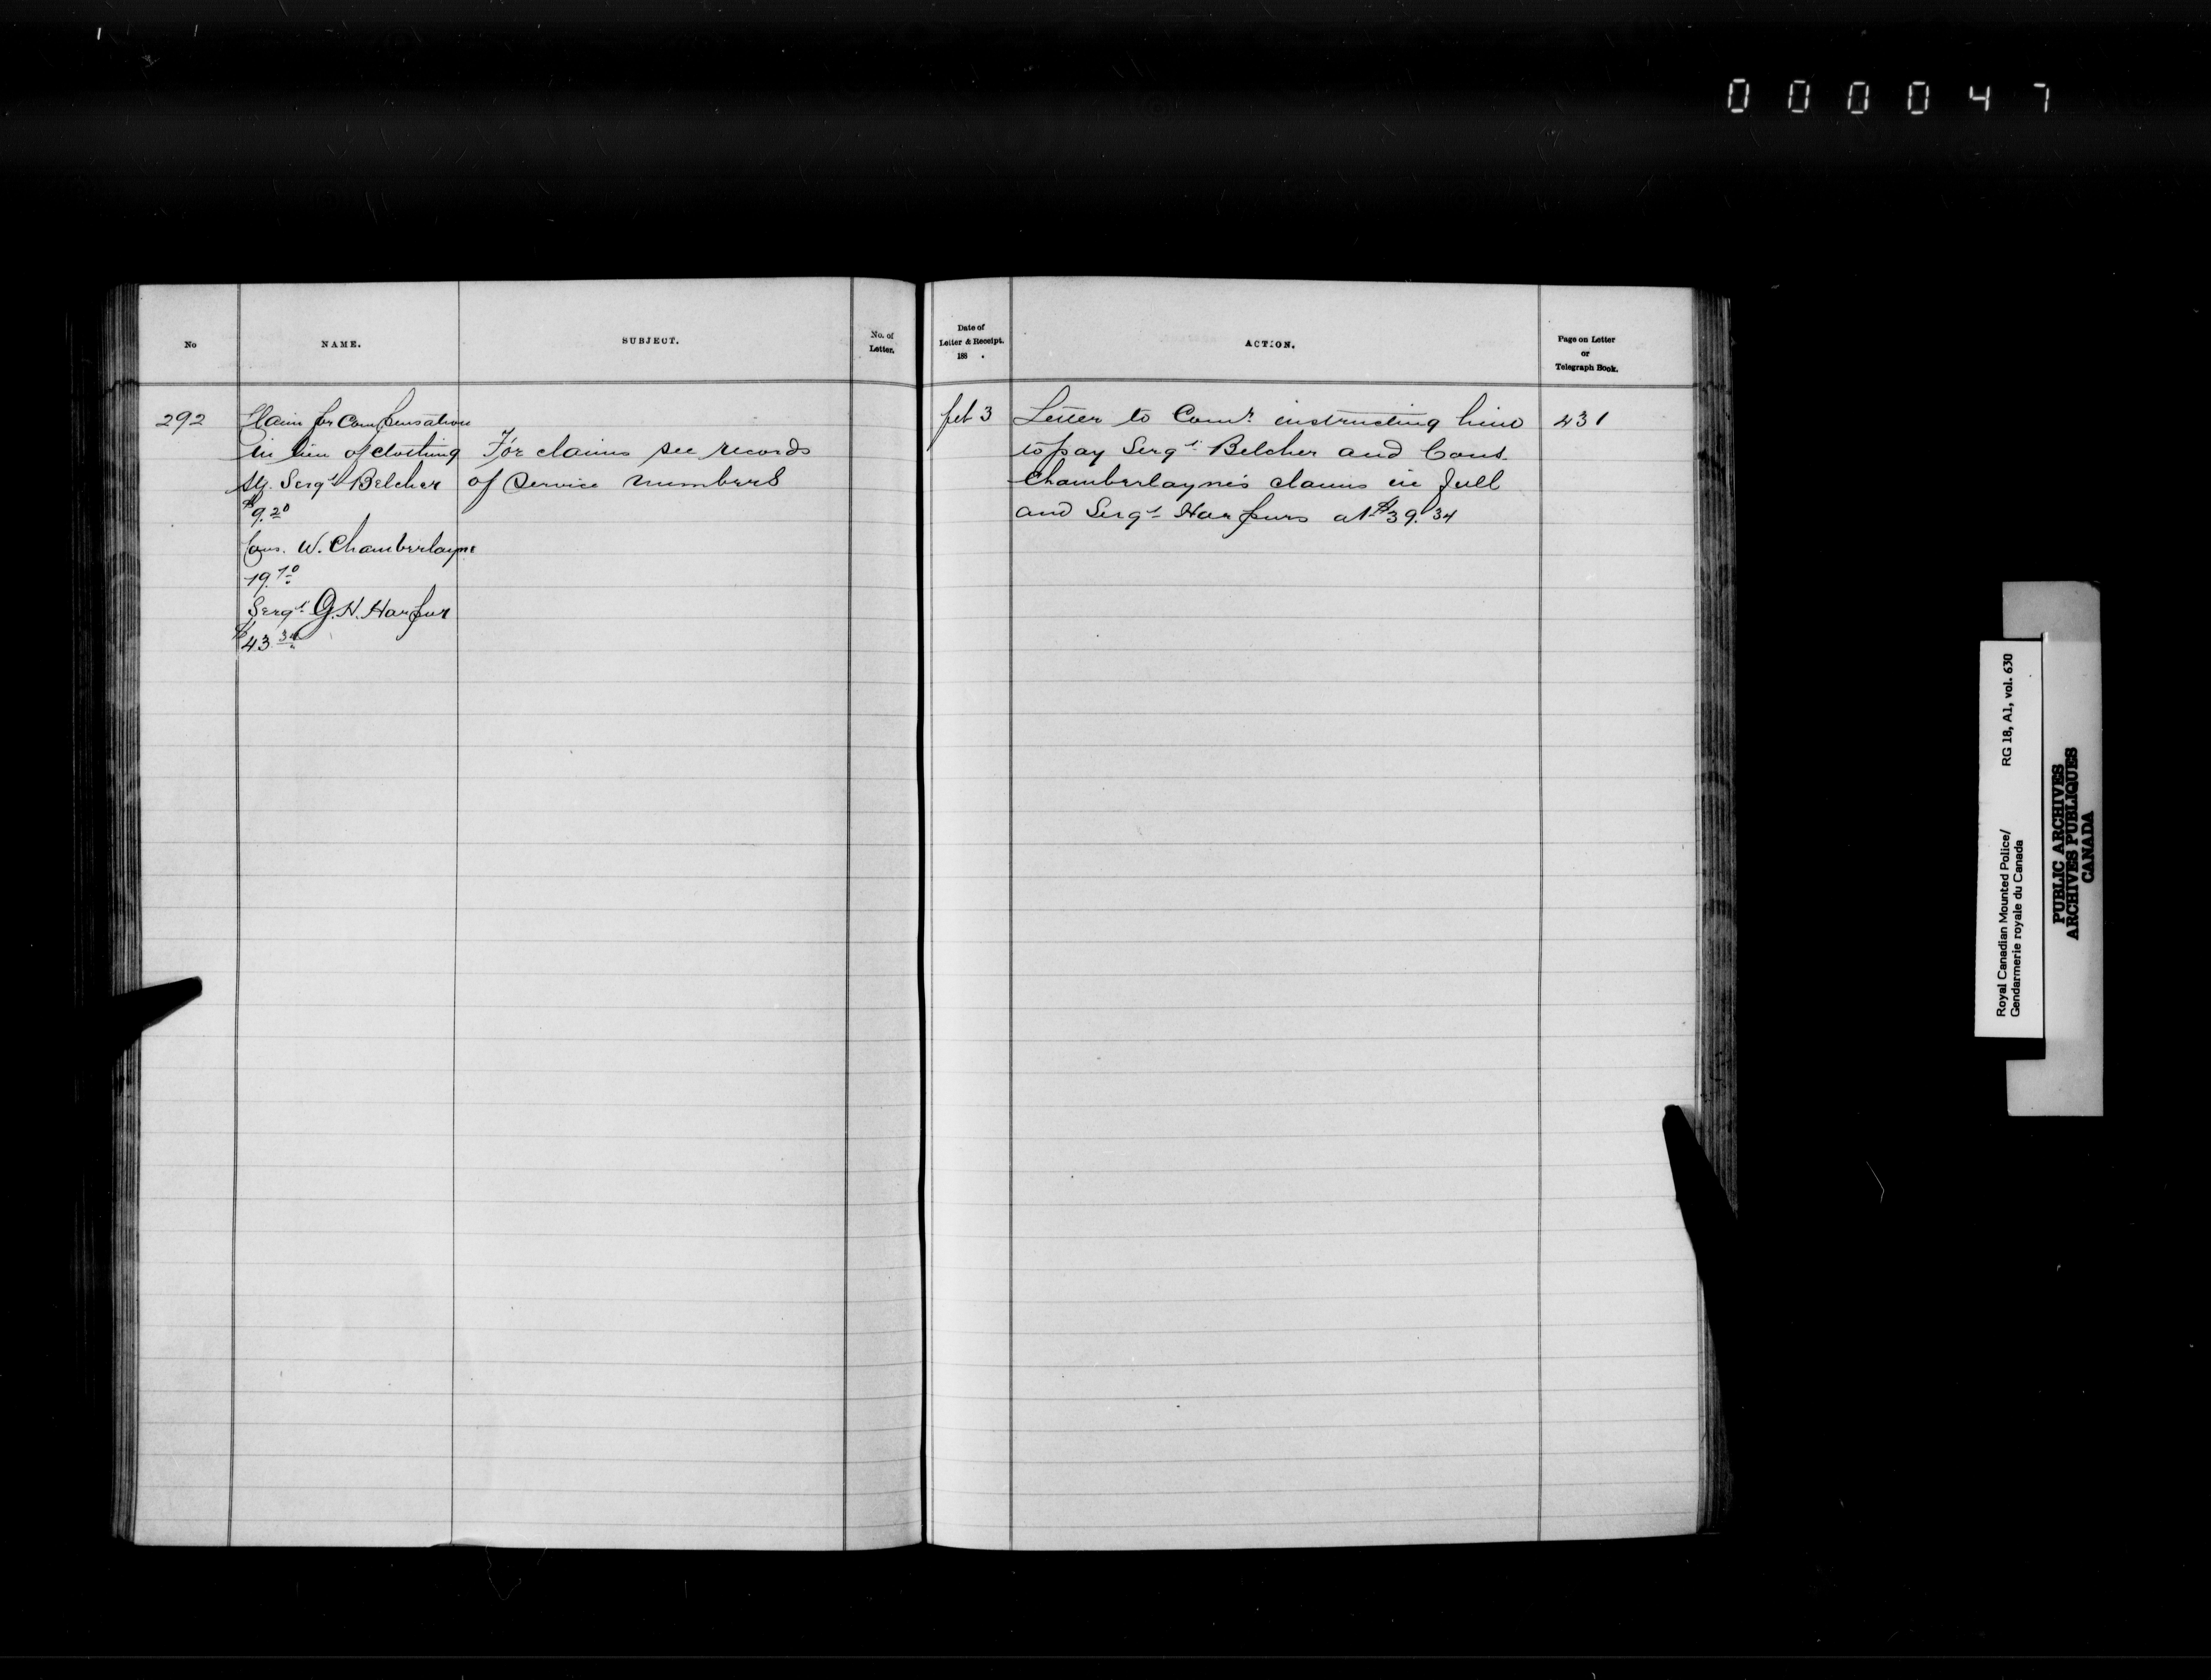 0 0 0 0 4 7
No
NAME.
SUBJECT.
No. of
Letter.
Date of
Letter & Receipt.
188 .
ACTION.
Page on Letter
or
Telegraph Book.
292
Claim for Compensation
in lieu of clothing
Serg't Belcher
$9.20
Cons. W. Chamberlayne
19.70
Serg't G. H. Harpur
$43.34
For claims see records
of Service numbers
feb 3
Letter to Comr. instructing him
to pay Sergt. Belcher and Cons.
Chamberlayne's claims in full
and Sergt Harpurs at $39.34
431
Royal Canadian Mounted Police/
Gendarmerie royale du Canada
RG 18, A1, vol. 630
PUBLIC ARCHIVES
ARCHIVES PUBLIQUES
CANADA